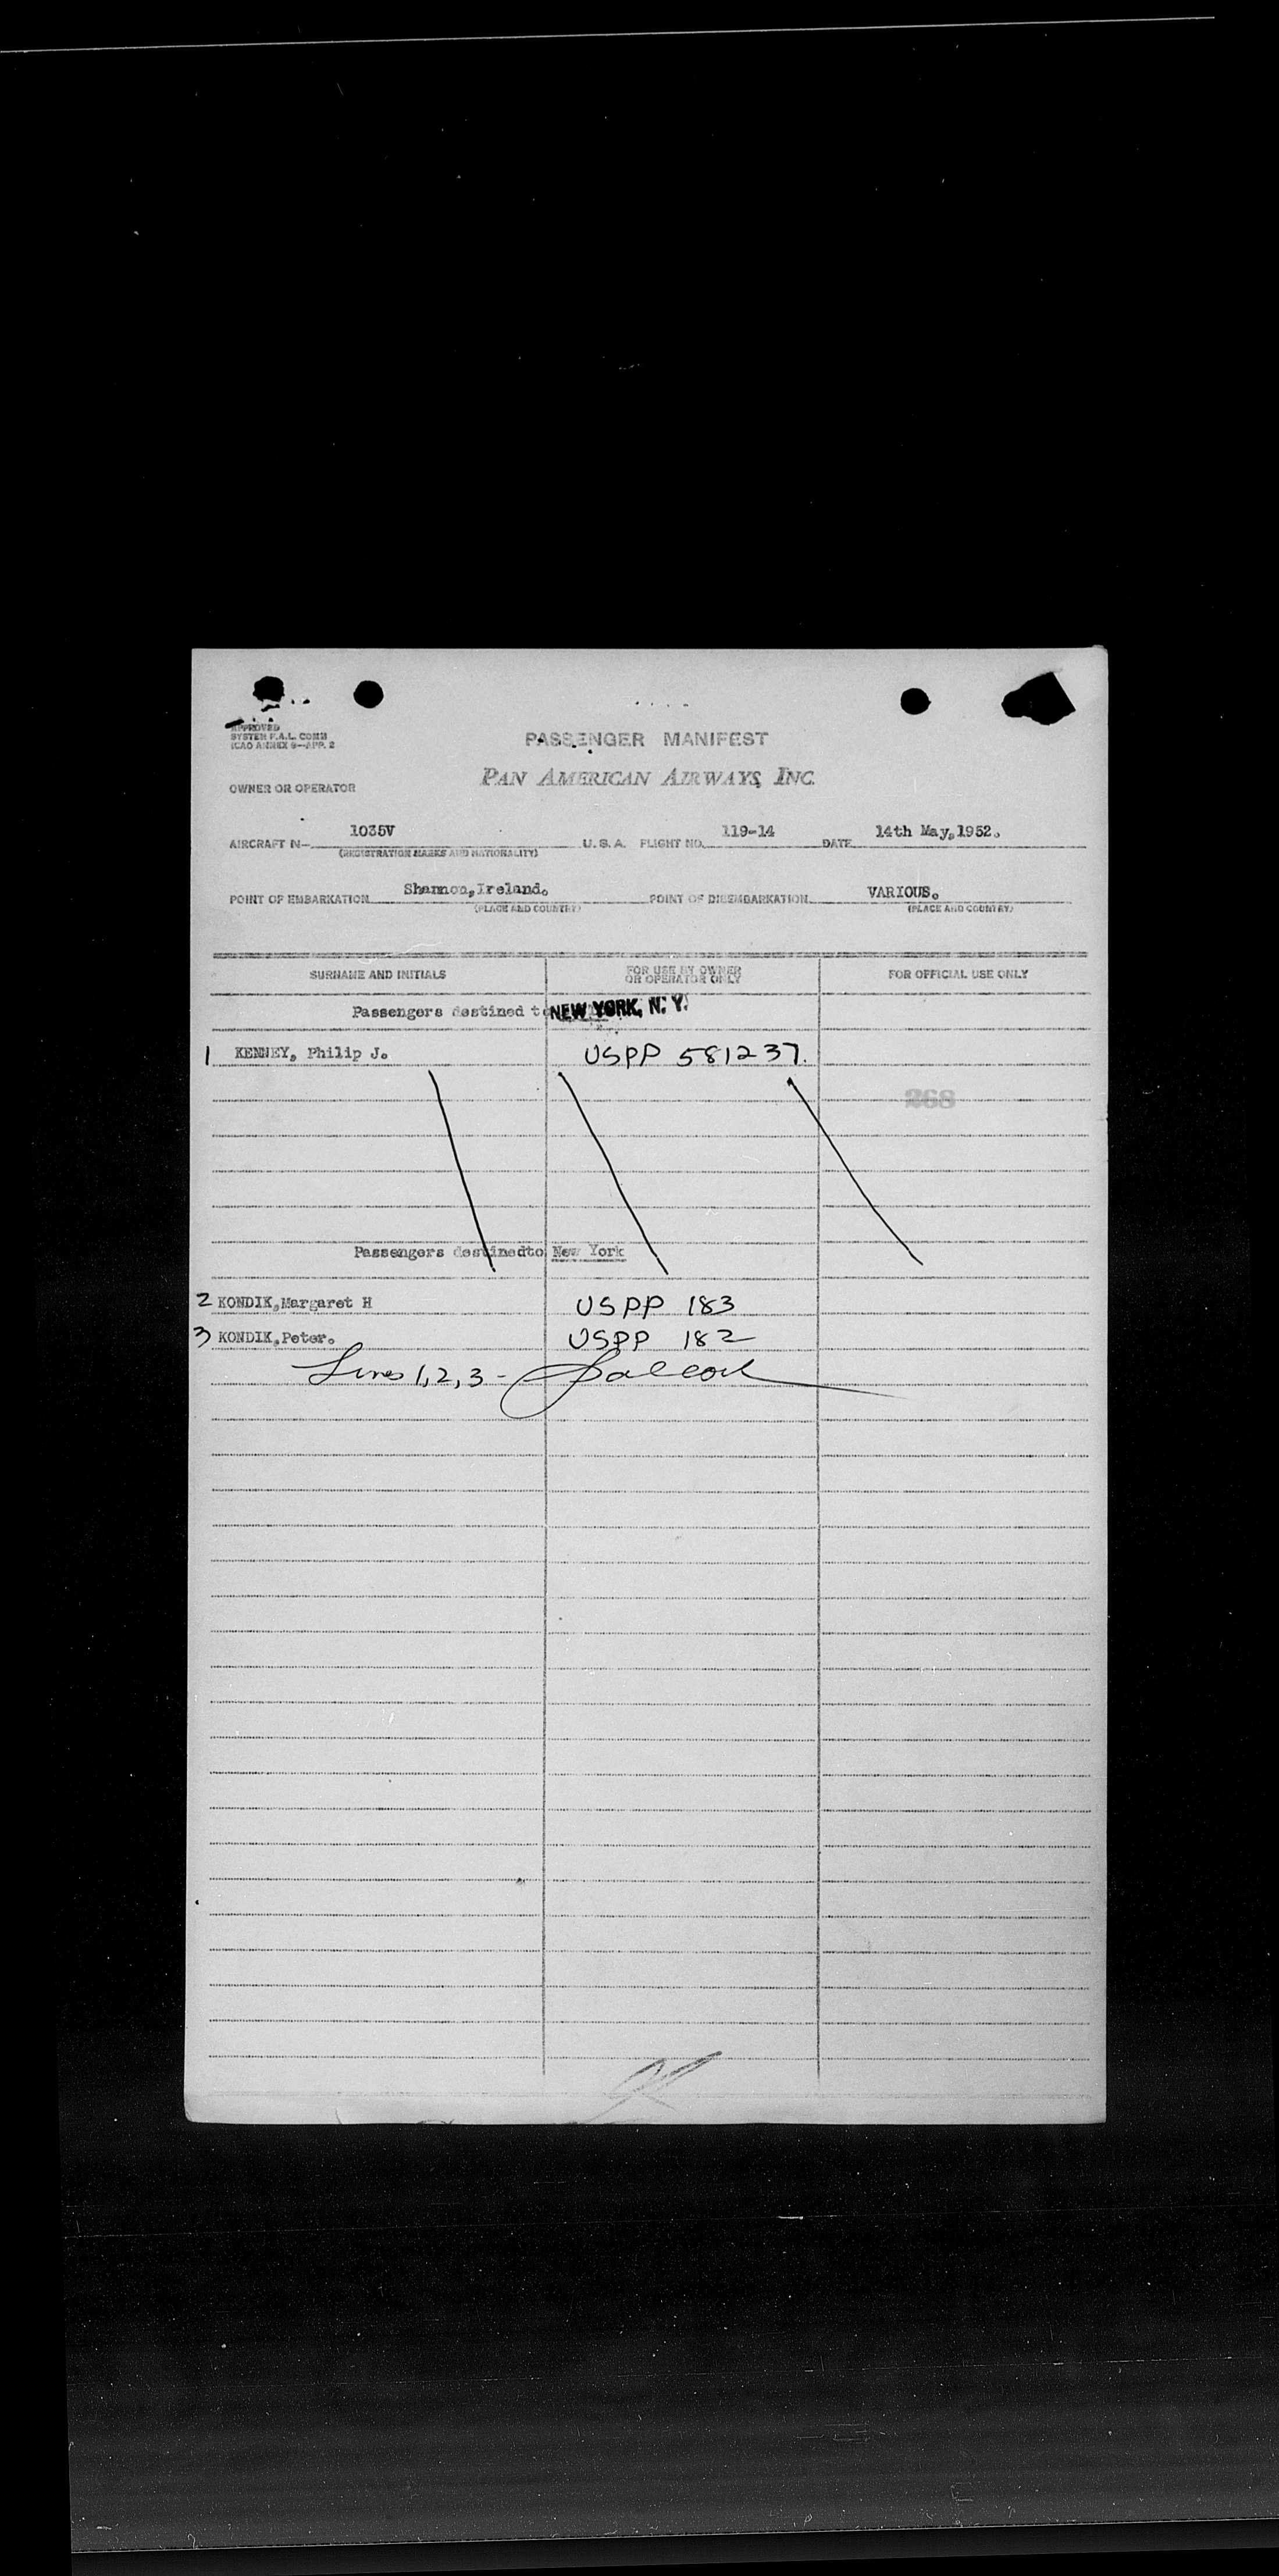 APPROVED
SYSTEM F.A.L. COMM
ICAO ANNEX 9—APP. 2
PASSENGER MANIFEST
PAN AMERICAN AIRWAYS, INC.
OWNER OR OPERATOR
AIRCRAFT N- 1035V U.S.A. FLIGHT NO. 119-14 DATE 14th May,1952.
(REGISTRATION MARKS AND NATIONALITY)
POINT OF EMBARKATION Shannon,Ireland. POINT OF DISEMBARKATION VARIOUS.
(PLACE AND COUNTRY) (PLACE AND COUNTRY)
SURNAME AND INITIALS FOR USE BY OWNER OR OPERATOR ONLY FOR OFFICIAL USE ONLY
Passengers destined to NEW YORK, N. Y.
1 KENNEY, Philip J. USPP 581237.
268
Passengers destinedto New York
2 KONDIK,Margaret H USPP 183
3 KONDIK,Peter. USPP 182
Lines 1,2,3 -